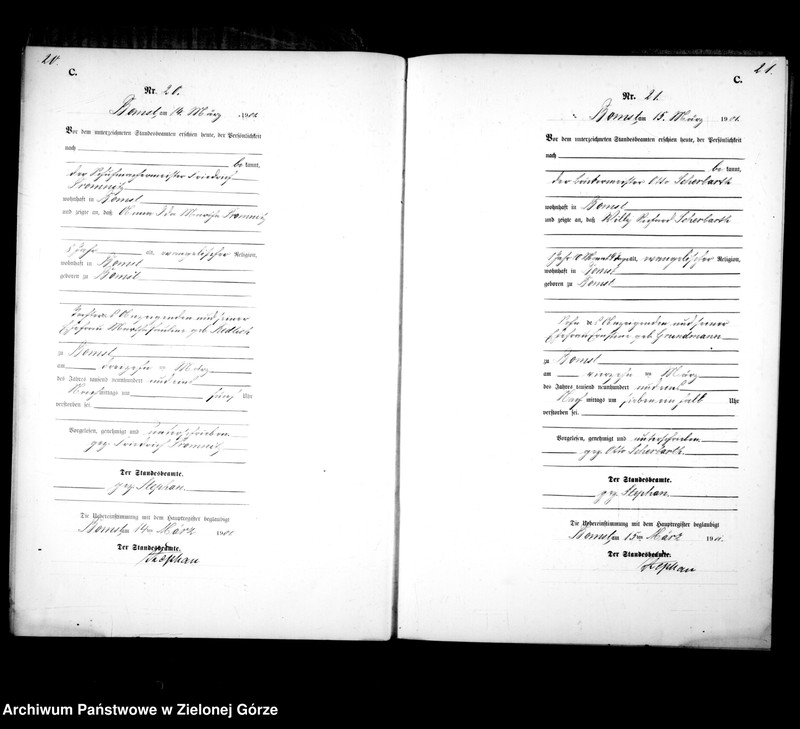 20.
C.
Nr. 20.
Bomst am 14. März 1901.
Vor dem unterzeichneten Standesbeamten erschien heute, der Persönlichkeit
nach
be kannt,
der Friedrich
Promnitz
wohnhaft in Bomst
und zeigte an, daß Anna Ida Promnitz
Jahr alt, evangelischer Religion,
wohnhaft in Bomst
geboren zu Bomst
Tochter des Anzeigenden und seiner
Ehefrau geb.
zu Bomst
am dreizehn ten März
des Jahres tausend neunhundert und eins
Nachmittags um fünf Uhr
verstorben sei.
Vorgelesen, genehmigt und unterschrieben.
gez. Friedrich Promnitz
Der Standesbeamte.
gez. Stephan.
Die Uebereinstimmung mit dem Hauptregister beglaubigt
Bomst am 14ten März 1901.
Der Standesbeamte.
Stephan
21.
C.
Nr. 21.
Bomst am 15. März 1901.
Vor dem unterzeichneten Standesbeamten erschien heute, der Persönlichkeit
nach
be kannt,
der Otto Scherbarth
wohnhaft in Bomst
und zeigte an, daß Willy Scherbarth
alt, evangelischer Religion,
wohnhaft in Bomst
geboren zu Bomst
Sohn des Anzeigenden und seiner
Ehefrau geb. Grundmann
zu Bomst
am ten März
des Jahres tausend neunhundert und eins
Nach mittags um sieben ein halb Uhr
verstorben sei.
Vorgelesen, genehmigt und unterschrieben.
gez. Otto Scherbarth.
Der Standesbeamte.
gez. Stephan.
Die Uebereinstimmung mit dem Hauptregister beglaubigt
Bomst am 15ten März 1901.
Der Standesbeamte.
Stephan
Archiwum Państwowe w Zielonej Górze